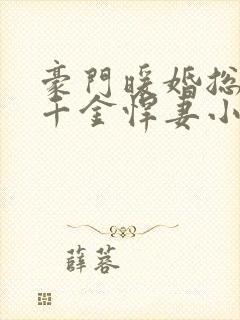 豪門暖婚总
千金悍妻小
薛蓉